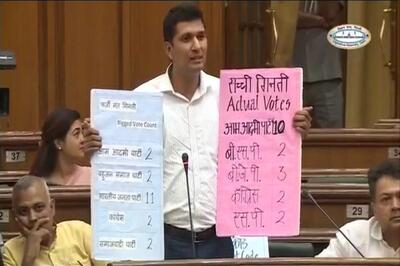 फर्जी मत गिनती
Rigged Vote Count
आम आदमी पार्टी 2
बहुजन समाज पार्टी 2
भारतीय जनता पार्टी 11
कांग्रेस 2
समाजवादी पार्टी 2
सच्ची गिनती
Actual Votes
आम.आदमी पार्टी 10
बी.एस.पी. 2
बी.जे.पी. 3
कांग्रेस 2
एस.पी. 2
37
29